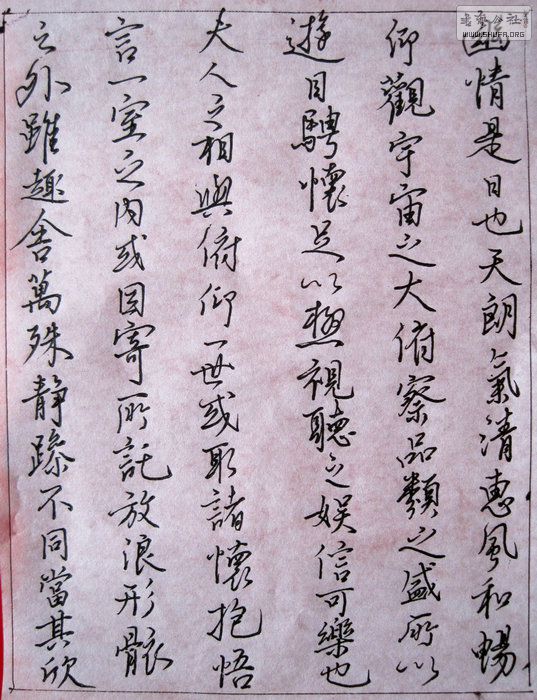 幽情是日也天朗氣清惠風和暢
仰觀宇宙之大俯察品類之盛所以
遊目騁懷足以極視聽之娛信可樂也
夫人之相與俯仰一世或取諸懷抱悟
言一室之內或因寄所託放浪形骸
之外雖趣舍萬殊靜躁不同當其欣
书法公社
WWW.SHUFA.ORG